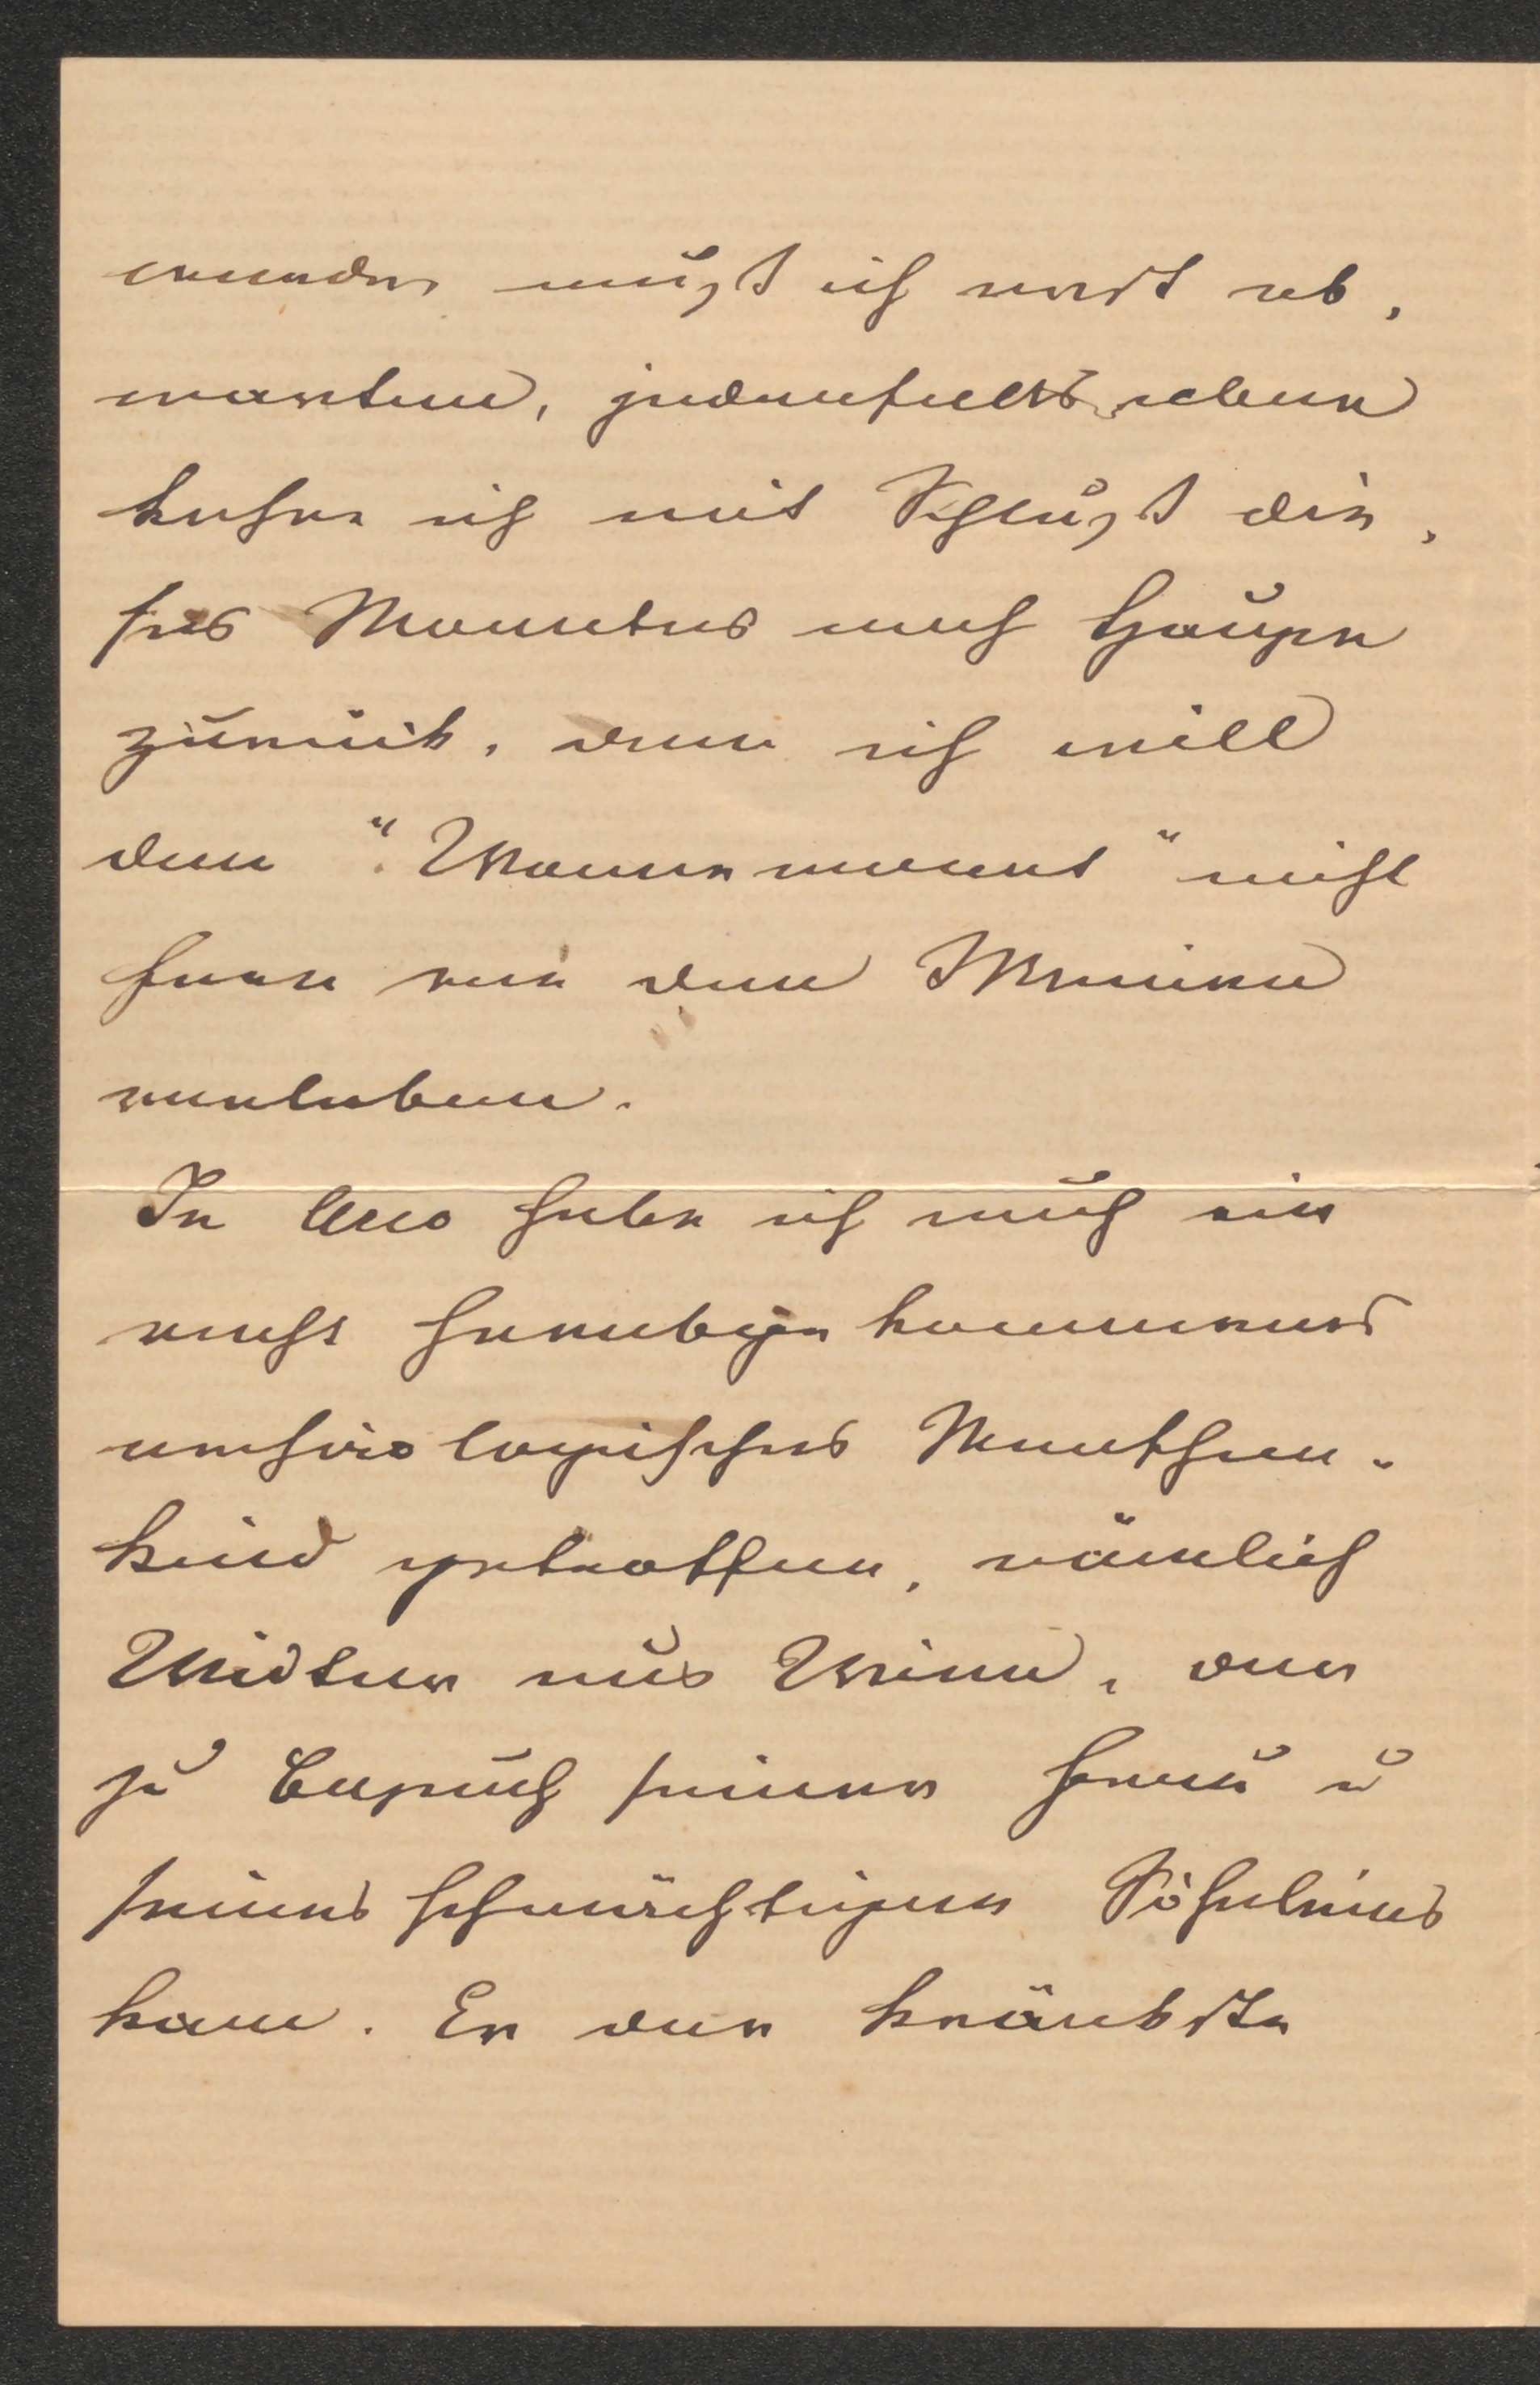 werde, muß ich erst ab,
warten, jedenfalls aber
kehre ich mit Schluß die,
ses Monates nach Hause
zurück, denn ich will
den "Wonnemonat" nicht
fern von den Meinen
verleben.
In Arco habe ich auch ein
recht herabgekommenes
archäologisches Menschen-
kind getroffen, nämlich
Widter aus Wien, der
zu Besuch seiner Frau u
seines schmächtigen Söhnleins
kam. Er der kränkste